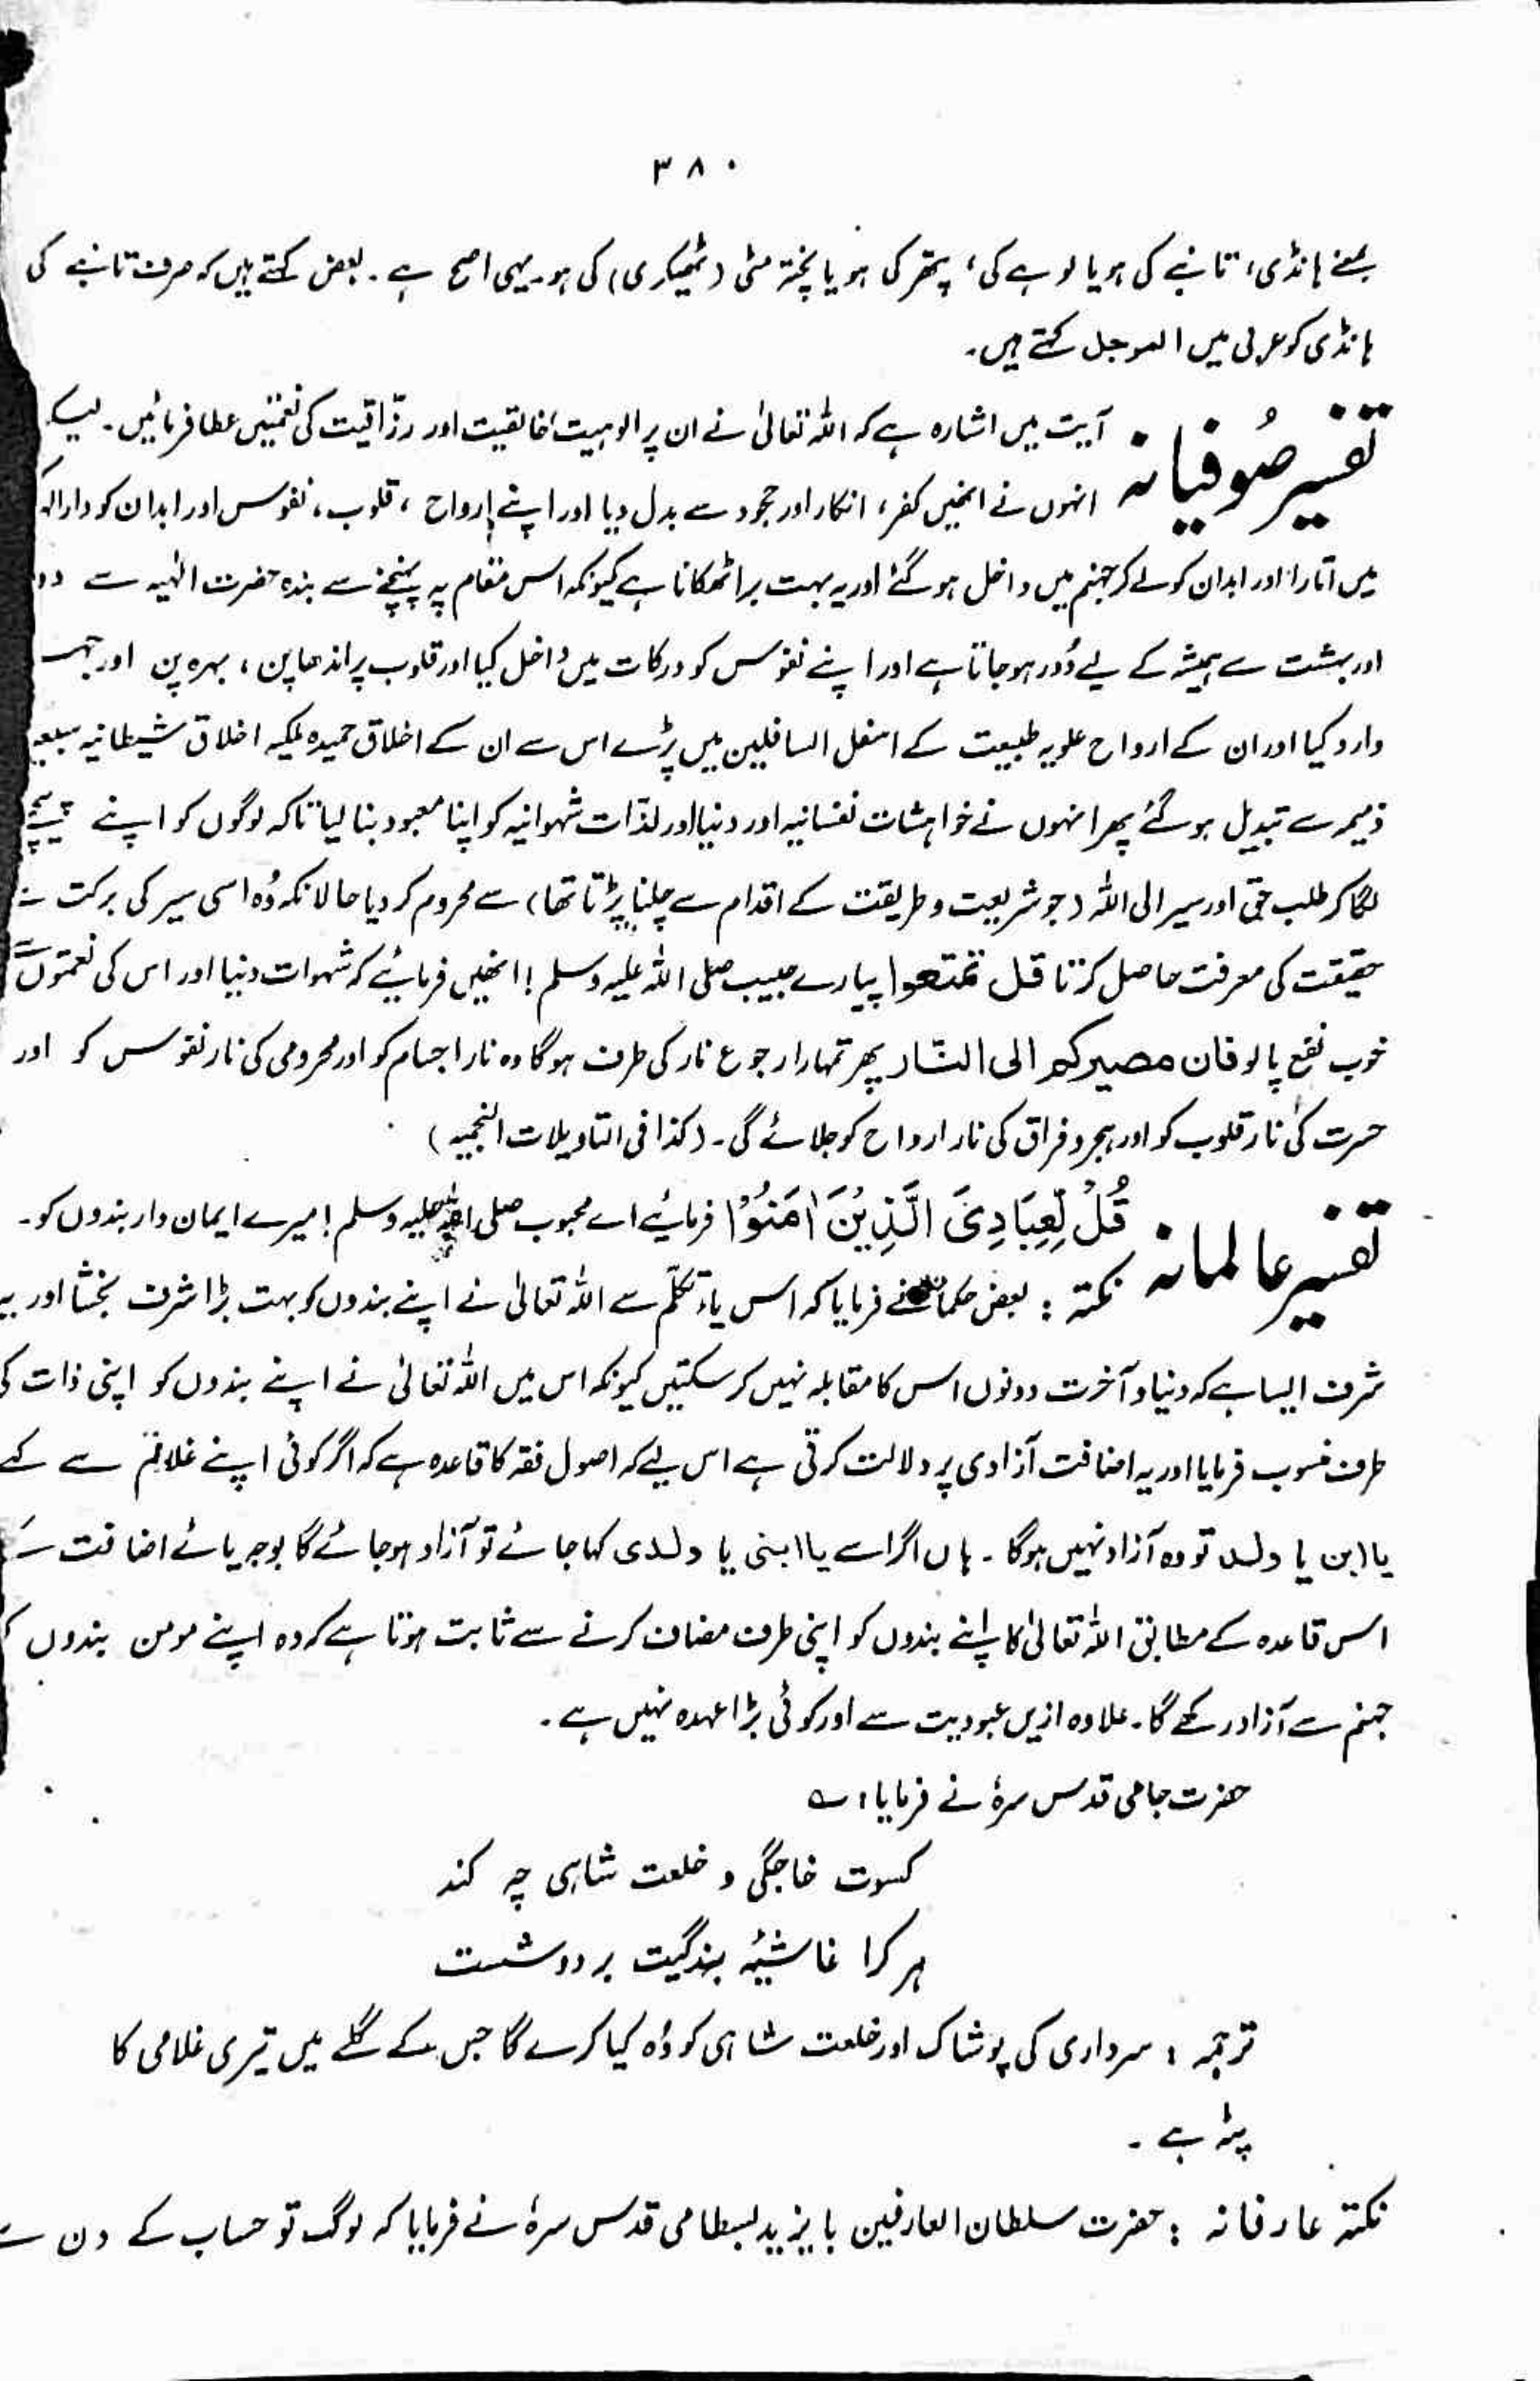 ۳۸۰
بمعنے ہانڈی، تانبے کی ہو یا لوہے کی، پتھر کی ہو یا پختہ مٹی (ٹھیکری) کی ہو۔ یہی اصح ہے۔ بعض کہتے ہیں کہ صرف تانبے کی
ہانڈی کو عربی میں الموجل کہتے ہیں۔
تفسیر صُوفیانہ
آیت میں اشارہ ہے کہ اللہ تعالیٰ نے ان پر الوہیت، خالقیت اور رزّاقیت کی نعمتیں عطا فرمائیں۔
انہوں نے انھیں کفر، انکار اور جحود سے بدل دیا اور اپنے ارواح، قلوب، نفوس اور ابدان کو
میں اتارا اور ابدان کو لے کر جہنم میں داخل ہو گئے اور یہ بہت برا ٹھکانا ہے کیونکہ اس مقام پہ پہنچنے سے بندہ حضرت الٰہیہ سے
اور بہشت سے ہمیشہ کے لیے دُور ہو جاتا ہے اور اپنے نفوس کو درکات میں داخل کیا اور قلوب پر اندھاپن، بہرہ پن اور
وارد کیا اور ان کے ارواح علویہ طبیعت کے اسفل السافلین میں پڑے اس سے ان کے اخلاق حمیدہ ملکیہ اخلاق شیطانیہ
ذمیمہ سے تبدیل ہو گئے پھر انہوں نے خواہشات نفسانیہ اور دنیا اور لذّات شہوانیہ کو اپنا معبود بنا لیا تاکہ لوگوں کو اپنے پیچھے
لگا کر طلب حق اور سیر الی اللہ (جو شریعت و طریقت کے اقدام سے چلنا پڑتا تھا) سے محروم کر دیا حالانکہ وُہ اسی سیر کی برکت
حقیقت کی معرفت حاصل کرتا قل تمتعوا پیارے حبیب صلی اللہ علیہ وسلم! انھیں فرمائیے کہ شہوات دنیا اور اس کی نعمتوں
خوب نفع پا لو فان مصیرکم الی النّار پھر تمہارا رجوع نار کی طرف ہوگا وہ نار اجسام کو اور محرومی کی نار نفوس کو اور
حسرت کی نار قلوب کو اور ہجر و فراق کی نار ارواح کو جلائے گی۔ (کذا فی التاویلات النجمیہ)
تفسیر عالمانہ
قُلْ لِّعِبَادِیَ الَّذِیْنَ اٰمَنُوْا فرمائیے اے محبوب صلی اللہ علیہ وسلم! میرے ایمان دار بندوں کو۔
نکتہ : بعض حکماء نے فرمایا کہ اس یاء تکلّم سے اللہ تعالیٰ نے اپنے بندوں کو بہت بڑا شرف بخشا اور یہ
شرف ایسا ہے کہ دنیا و آخرت دونوں اس کا مقابلہ نہیں کر سکتیں کیونکہ اس میں اللہ تعالیٰ نے اپنے بندوں کو اپنی ذات کی
طرف منسوب فرمایا اور یہ اضافت آزادی پر دلالت کرتی ہے اس لیے کہ اصول فقہ کا قاعدہ ہے کہ اگر کوئی اپنے غلام سے کہے
یا ابن یا ولد تو وہ آزاد نہیں ہوگا۔ ہاں اگر اسے یا ابنی یا ولدی کہا جائے تو آزاد ہو جائے گا بوجہ یائے اضافت کے
اس قاعدہ کے مطابق اللہ تعالیٰ کا اپنے بندوں کو اپنی طرف مضاف کرنے سے ثابت ہوتا ہے کہ وہ اپنے مومن بندوں
جہنم سے آزاد رکھے گا۔ علاوہ ازیں عبودیت سے اور کوئی بڑا عہدہ نہیں ہے۔
حضرت جامی قدس سرہٗ نے فرمایا : ؎
کسوت خاجگی و خلعت شاہی چہ کند
ہر کرا غاشیۂ بندگیت بر دوشست
ترجمہ : سرداری کی پوشاک اور خلعت شاہی کو وُہ کیا کرے گا جس کے گلے میں تیری غلامی کا
پٹہ ہے۔
نکتہ عارفانہ : حضرت سلطان العارفین بایزید بسطامی قدس سرہٗ نے فرمایا کہ لوگ تو حساب کے دن سے